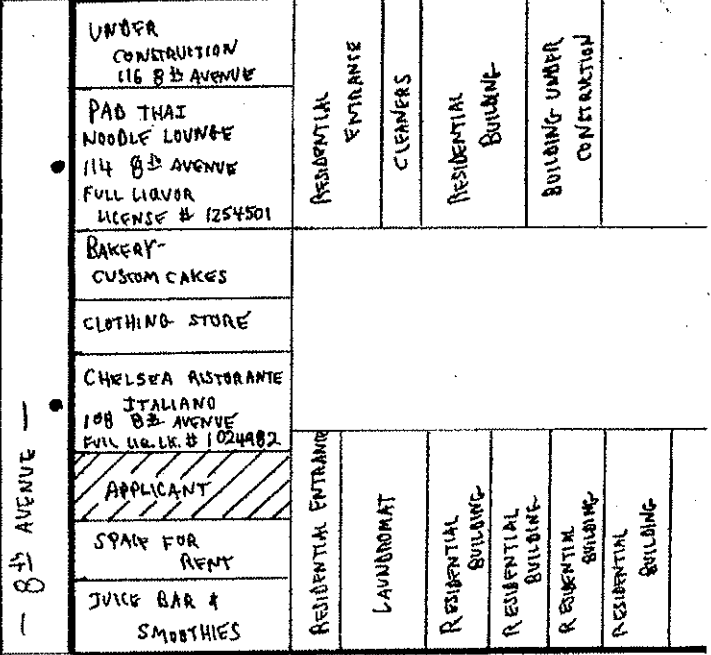 UNDER
CONSTRUCTION
116 8th AVENUE
PAD THAI
NOODLE LOUNGE
114 8th AVENUE
FULL LIQUOR
LICENSE # 1254501
BAKERY-
CUSTOM CAKES
CLOTHING STORE
CHELSEA RISTORANTE
ITALIANO
108 8th AVENUE
FULL LIQ. LIC. # 1024982
APPLICANT
SPACE FOR
RENT
JUICE BAR &
SMOOTHIES
— 8th AVENUE —
RESIDENTIAL
ENTRANCE
CLEANERS
RESIDENTIAL
BUILDING
BUILDING UNDER
CONSTRUCTION
RESIDENTIAL ENTRANCE
LAUNDROMAT
RESIDENTIAL
BUILDING
RESIDENTIAL
BUILDING
RESIDENTIAL
BUILDING
RESIDENTIAL
BUILDING